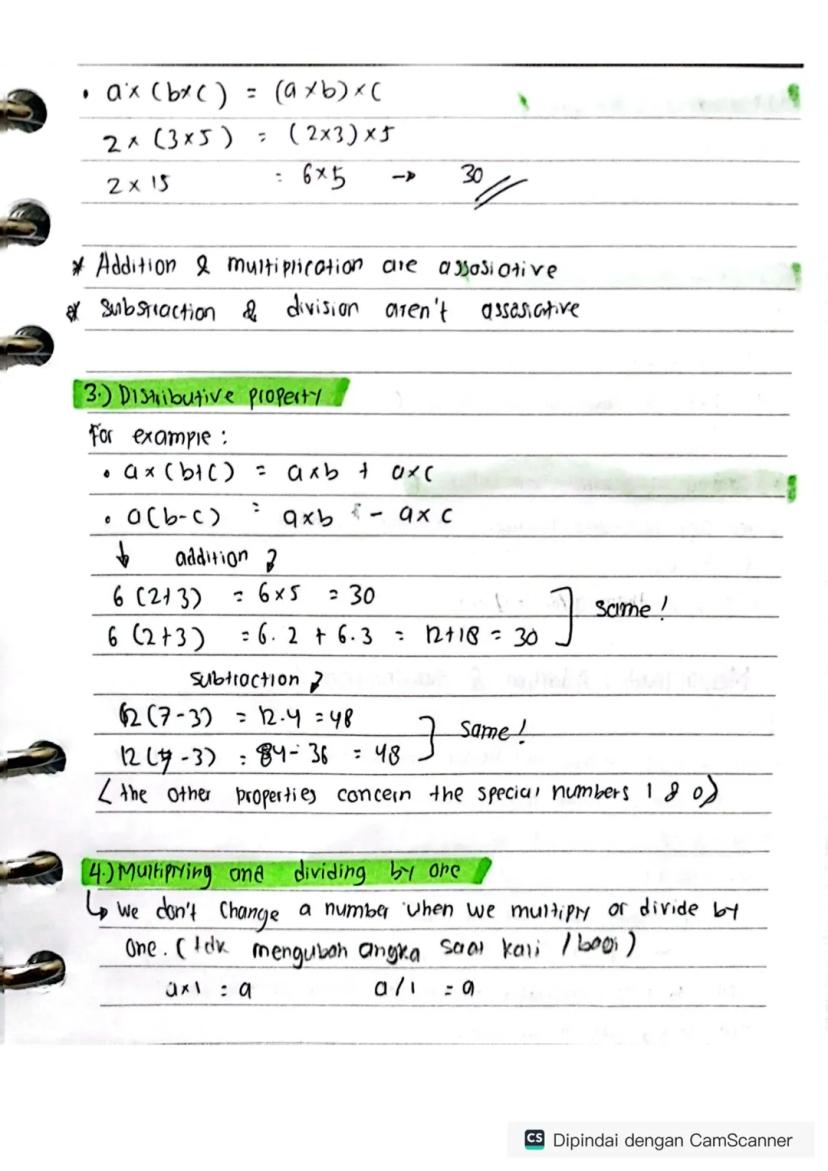 • a x (b x c) = (a x b) x c
2 x (3 x 5) = (2x3) x 5
2 x 15 = 6 x 5 → 30
* Addition & multiplication are assosiative
* Substraction & division aren't assosiative
3.) Distributive property
For example :
• a x (b+c) = a x b + a x c
• a(b-c) = a x b - a x c
↓ addition ?
6 (2+3) = 6 x 5 = 30
6 (2+3) = 6. 2 + 6.3 = 12+18 = 30 ] same !
subtraction ?
12 (7-3) = 12.4 = 48
12 (7-3) = 84 - 36 = 48 } same !
( the other properties concern the special numbers 1 & 0 )
4.) Multiplying and dividing by one
↳ we don't change a number when we multiply or divide by
one. ( Tdk mengubah angka saat kali / bagi )
a x 1 = a a / 1 = a
CS Dipindai dengan CamScanner